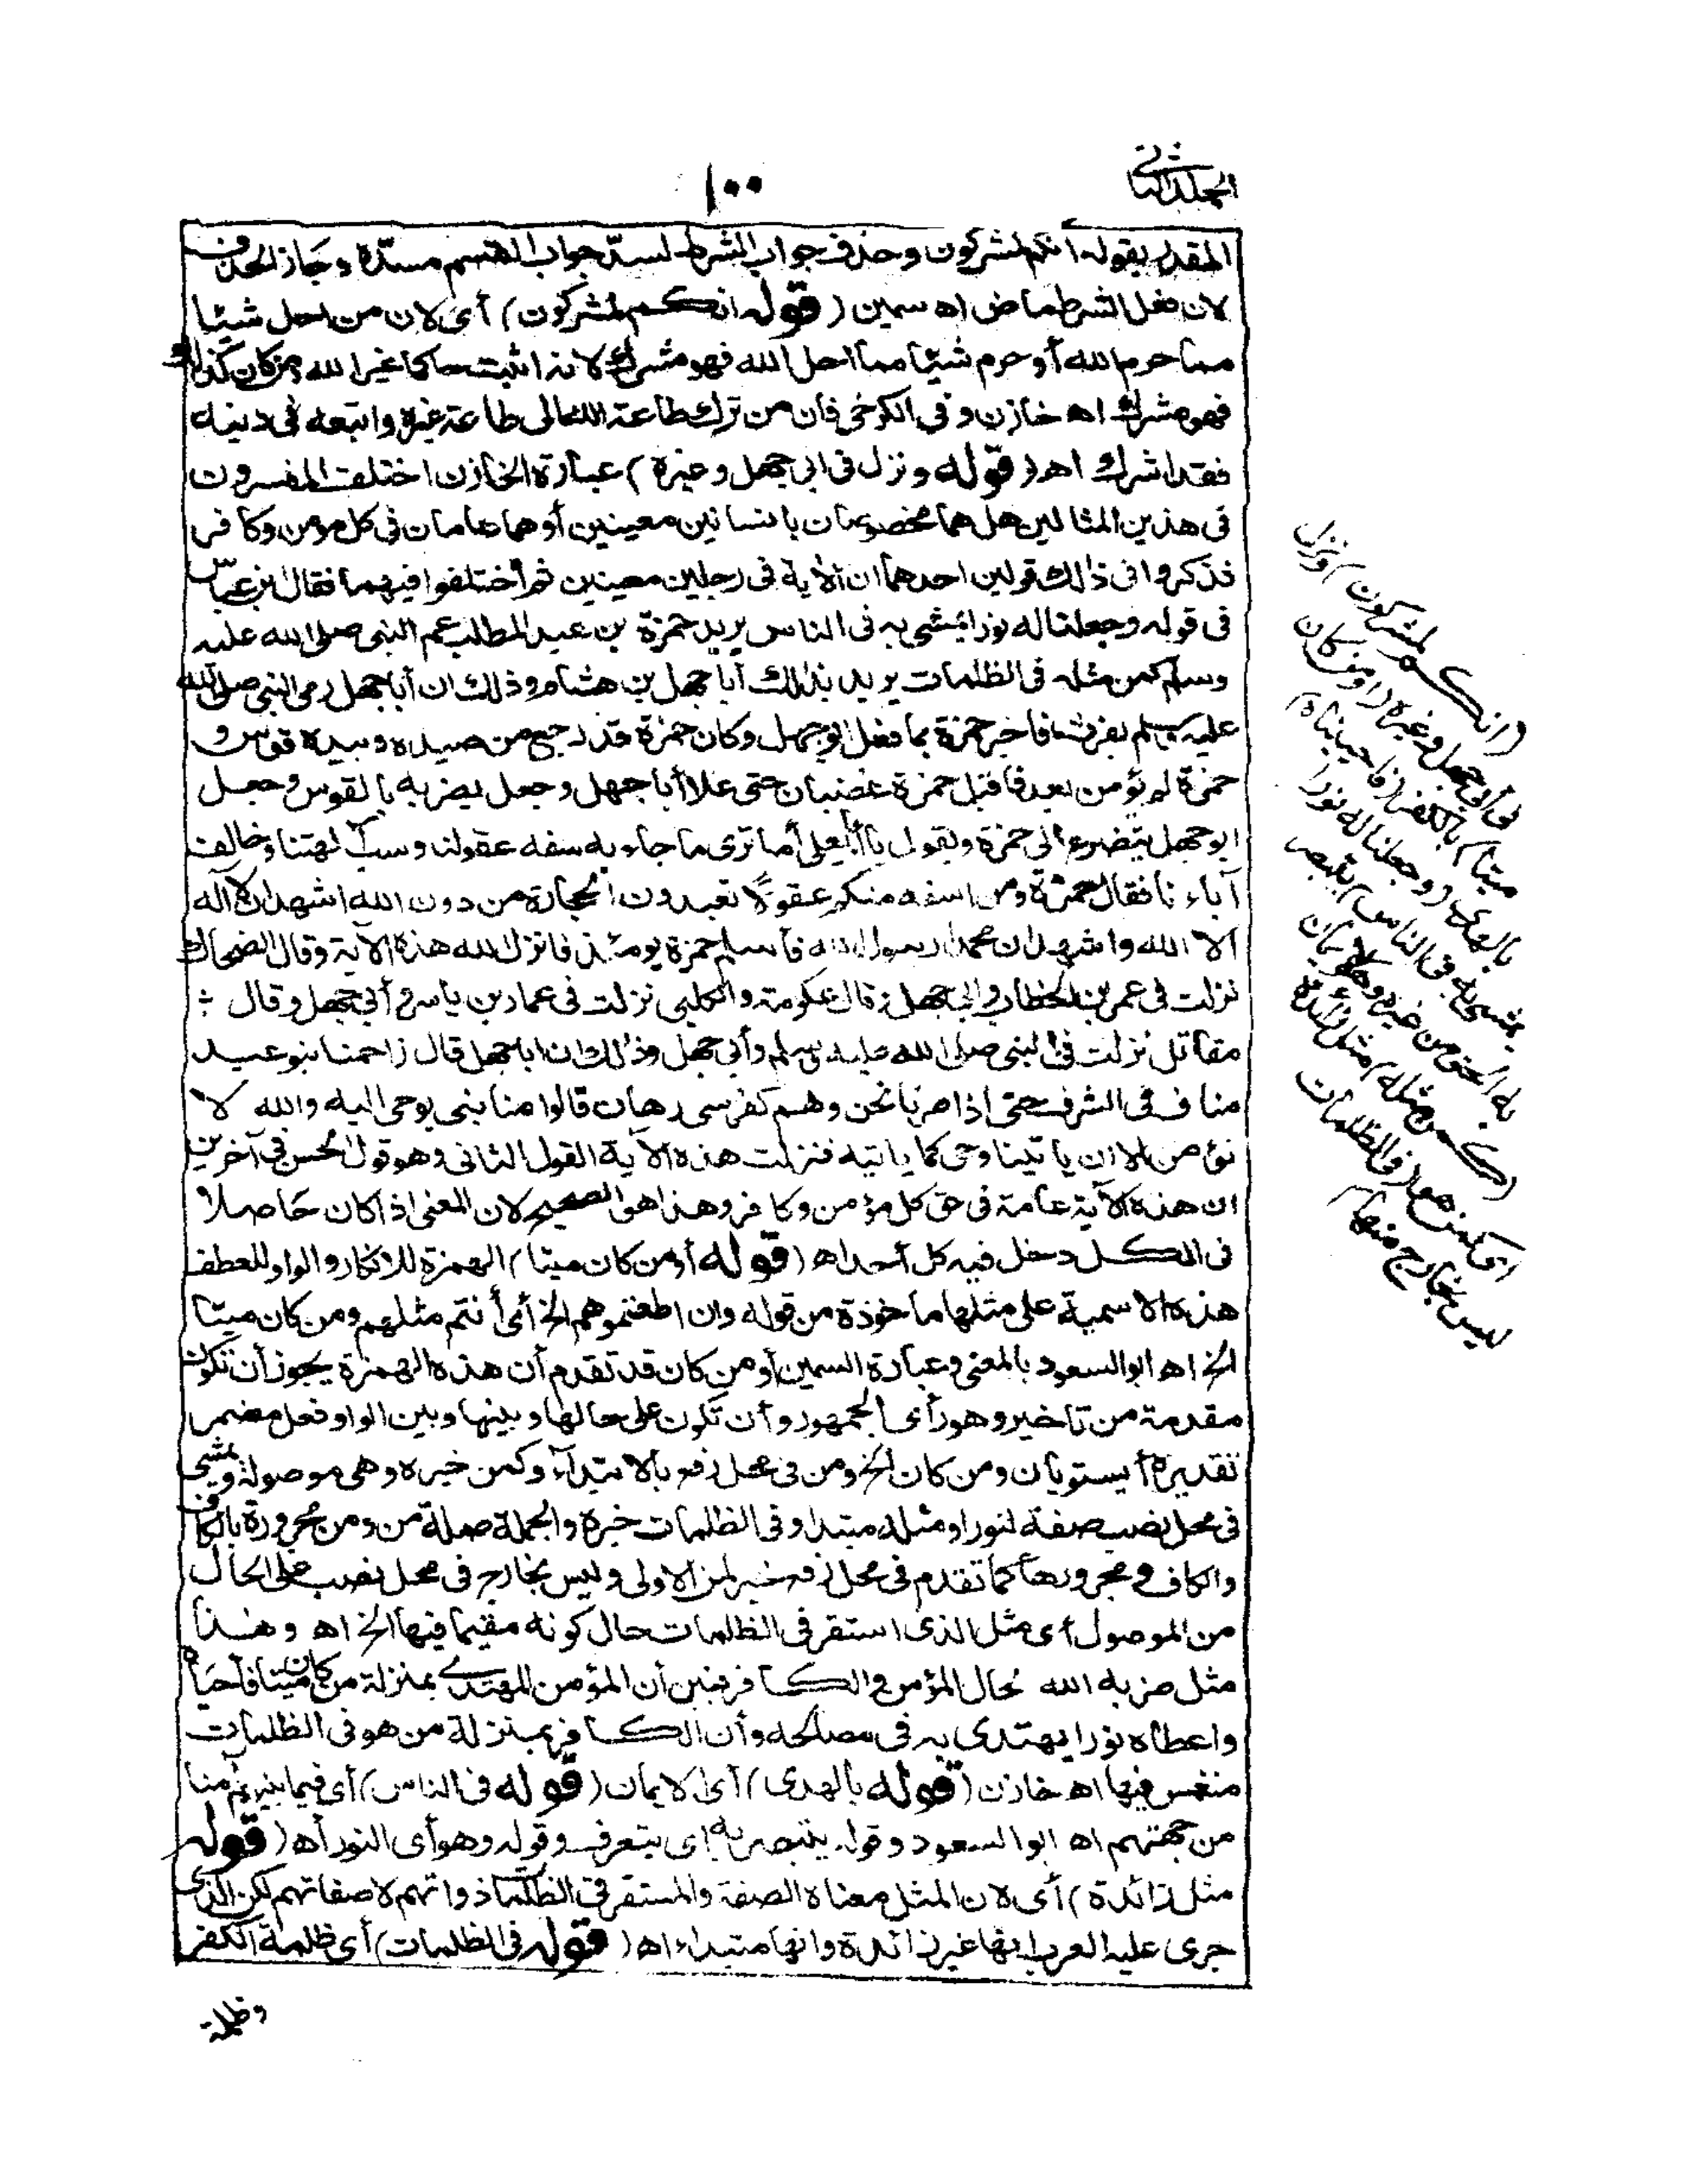 المجلد الثاني
١٠٠
المقدر بقوله انكم لمشركون وحذف جواب الشرط لسدّ جواب القسم مسدّه وجاز الحذف
لان فعل الشرط ماض اه سمين (قوله انكم لمشركون) أى لان من احل شيئا
مما حرم الله أو حرم شيئا مما احل الله فهو مشرك لانه اثبت حاكما غير الله ومن كان كذلك
فهو مشرك اه خازن وفى الكرخى فان من ترك طاعة الله الى طاعة غيره واتبعه فى دينه
فقد اشرك اه (قوله ونزل فى ابى جهل وغيره) عبارة الخازن اختلف المفسرون
فى هذين المثالين هل هما مخصوصان بانسانين معينين أو هما عامان فى كل مؤمن وكافر
فذكروا فى ذلك قولين احدهما ان الآية فى رجلين معينين ثم اختلفوا فيهما فقال ابن عباس
فى قوله وجعلنا له نورا يمشى به فى الناس يريد حمزة بن عبد المطلب عم النبى صلى الله عليه
وسلم كمن مثله فى الظلمات يريد بذلك أبا جهل بن هشام وذلك ان أبا جهل رمى النبى صلى الله
عليه وسلم بفرث فاخبر حمزة بما فعل ابو جهل وكان حمزة قد رجع من صيده وبيده قوس و
حمزة لم يؤمن بعد فاقبل حمزة غضبان حتى علا أبا جهل وجعل يضربه بالقوس وجعل
ابو جهل يتضرع الى حمزة ويقول يا أبا يعلى أما ترى ما جاء به سفه عقولنا وسب آلهتنا وخالف
آباءنا فقال حمزة ومن اسفه منكم عقولا تعبدون الحجارة من دون الله اشهد ان لا آله
الا الله واشهد ان محمدا رسول الله فأسلم حمزة يومئذ فانزل الله هذه الآية وقال الضحاك
نزلت فى عمر بن الخطاب وابى جهل وقال عكرمة والكلبى نزلت فى عمار بن ياسر وأبى جهل وقال :
مقاتل نزلت فى النبى صلى الله عليه وسلم وأبى جهل وذلك ان ابا جهل قال زاحمنا بنو عبد
مناف فى الشرف حتى اذا صرنا نحن وهم كفرسى رهان قالوا منا نبى يوحى اليه والله لا
نؤمن الا ان ياتينا وحى كما ياتيه فنزلت هذه الآية القول الثانى وهو قول الحسن فى آخرين
ان هذه الآية عامة فى حق كل مؤمن وكافر وهذا هو الصحيح لان المعنى اذا كان حاصلا
فى الكل دخل فيه كل أحد اه (قوله أو من كان ميتا) الهمزة للانكار والواو للعطف
هذه الاسمية على مثلها ماخوذة من قوله وان اطعتموهم الخ أى أنتم مثلهم ومن كان ميتا
الخ اه ابو السعود بالمعنى وعبارة السمين أو من كان قد تقدم أن هذه الهمزة يجوز أن تكون
مقدمة من تاخير وهو رأى الجمهور وأن تكون على حالها وبينها وبين الواو فعل مضمر
تقديره أيستويان ومن كان الخ ومن فى محل رفع بالابتداء وكمن خبره وهى موصولة ويمشى
فى محل نصب صفة لنورا ومثله مبتدا وفى الظلمات خبره والجملة صلة من ومن مجرورة بالكاف
والكاف ومجرورها كما تقدم فى محل رفع خبر لمن الاولى وليس بخارج فى محل نصب على الحال
من الموصول أى مثل الذى استقر فى الظلمات حال كونه مقيما فيها الخ اه وهذا
مثل ضربه الله لحال المؤمن والكافر فبين أن المؤمن المهتدى بمنزلة من كان ميتا فأحياه
واعطاه نورا يهتدى به فى مصالحه وأن الكافر بمنزلة من هو فى الظلمات
منغمس فيها اه خازن (قوله بالهدى) أى الايمان (قوله فى الناس) أى فيما بينهم آمنا
من جهتهم اه ابو السعود وقوله يتبصر به اى يتعرف وقوله وهو أى النور اه (قوله
مثل زائدة) أى لان المثل معناه الصفة والمستقر فى الظلمات ذواتهم لا صفاتهم لكن الذى
جرى عليه المعرب انها غير زائدة وانها مبتداء اه (قوله فى الظلمات) أى ظلمة الكفر
وظلمة
(انكم لمشركون) ونزل
فى أبى جهل وغيره (أو من كان
ميتا) بالكفر (فاحييناه)
بالهدى (وجعلنا له نورا
يمشى به فى الناس) يتبصر
به الحق من غيره وهو الايمان
(كمن مثله) مثل زائدة
اى كمن هو (فى الظلمات
ليس بخارج منها)